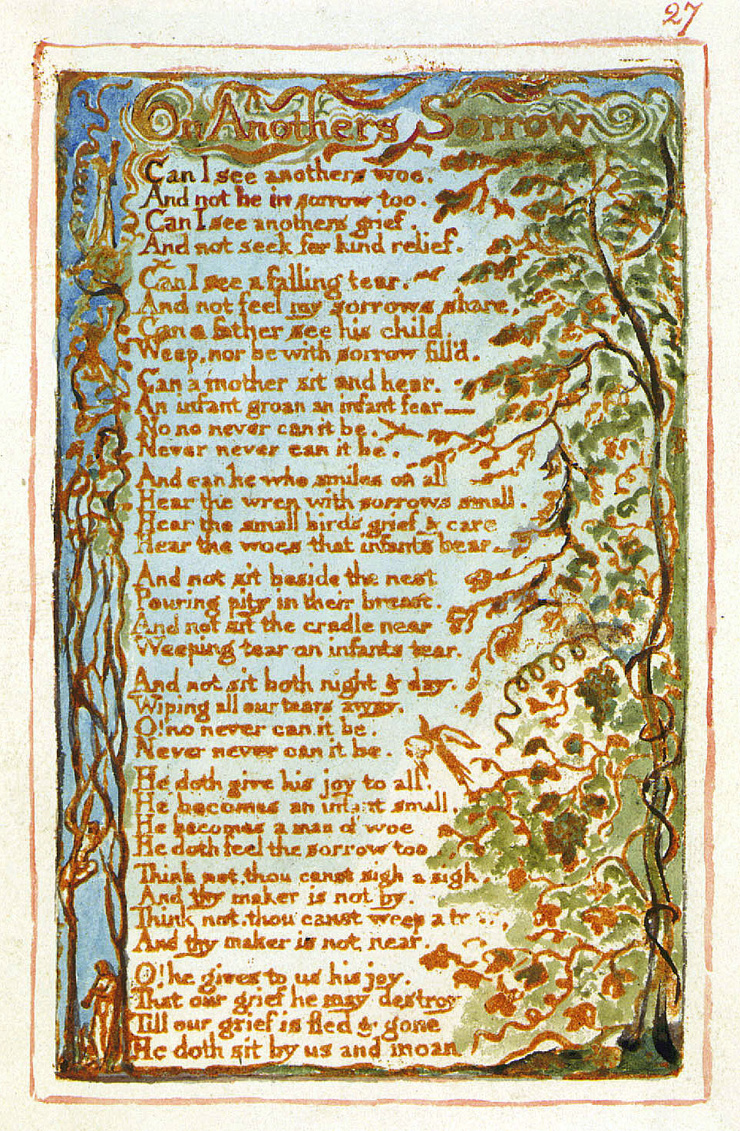 27
On Anothers Sorrow
Can I see anothers woe.
And not be in sorrow too.
Can I see anothers grief.
And not seek for kind relief.
Can I see a falling tear.
And not feel my sorrows share,
Can a father see his child.
Weep, nor be with sorrow fill'd.
Can a mother sit and hear.
An infant groan an infant fear
No no never can it be.
Never never can it be.
And can he who smiles on all
Hear the wren with sorrows small.
Hear the small birds grief & care
Hear the woes that infants bear
And not sit beside the nest
Pouring pity in their breast.
And not sit the cradle near
Weeping tear on infants tear.
And not sit both night & day.
Wiping all our tears away.
O! no never can it be.
Never never can it be.
He doth give his joy to all.
He becomes an infant small.
He becomes a man of woe
He doth feel the sorrow too
Think not, thou canst sigh a sigh
And thy maker is not by.
Think not, thou canst weep a
And thy maker is not near.
O! he gives to us his joy.
That our grief he may destroy
Till our grief is fled & gone
He doth sit by us and moan